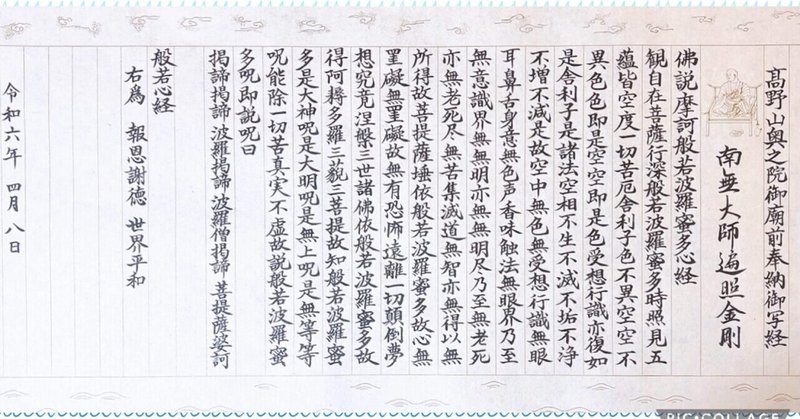 髙野山奥之院御廟前奉納御写経
南無大師遍照金剛
佛説摩訶般若波羅蜜多心経
観自在菩薩行深般若波羅蜜多時照見五
蘊皆空度一切苦厄舎利子色不異空空不
異色色即是空空即是色受想行識亦復如
是舎利子是諸法空相不生不滅不垢不浄
不増不減是故空中無色無受想行識無眼
耳鼻舌身意無色声香味触法無眼界乃至
無意識界無無明亦無無明尽乃至無老死
亦無老死尽無苦集滅道無智亦無得以無
所得故菩提薩埵依般若波羅蜜多故心無
罣礙無罣礙故無有恐怖遠離一切顛倒夢
想究竟涅槃三世諸佛依般若波羅蜜多故
得阿耨多羅三藐三菩提故知般若波羅蜜
多是大神呪是大明呪是無上呪是無等等
呪能除一切苦真実不虚故説般若波羅蜜
多呪即説呪曰
掲諦掲諦 波羅掲諦 波羅僧掲諦 菩提薩婆訶
般若心経
右為 報恩謝徳 世界平和
令和六年 四月 八日
PIC•COLLAGE